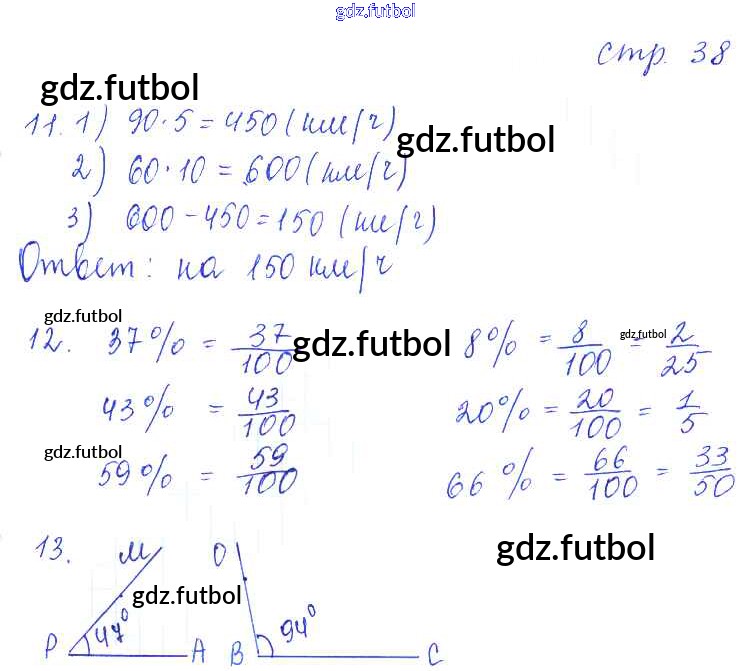 gdz.futbol
стр. 38
gdz.futbol
11. 1) 90·5 = 450 (км/ч)
gdz.futbol
2) 60·10 = 600 (км/ч)
3) 600 - 450 = 150 (км/ч)
Ответ: на 150 км/ч
gdz.futbol
12. 37% = 37/100 8% = 8/100 = 2/25
gdz.futbol gdz.futbol
43% = 43/100 20% = 20/100 = 1/5
gdz.futbol
59% = 59/100 66% = 66/100 = 33/50
13. М О
gdz.futbol
gdz.futbol
P 47° A B 94° C